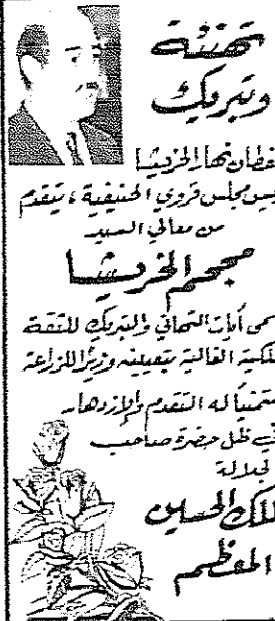 تهنئة
وتبريك
قحطان نهار الخريشا
يس مجلس قروي الحنيفية ، يتقدم
من معالي السيد
مجحم الخريشا
سمى آيات التهاني والتبريك للثقة
لملكية الغالية بتعيينه وزيراً للزراعة
متمنياً له التقدم والازدهار
في ظل حضرة صاحب
لجلالة
لملك الحسين
المعظم